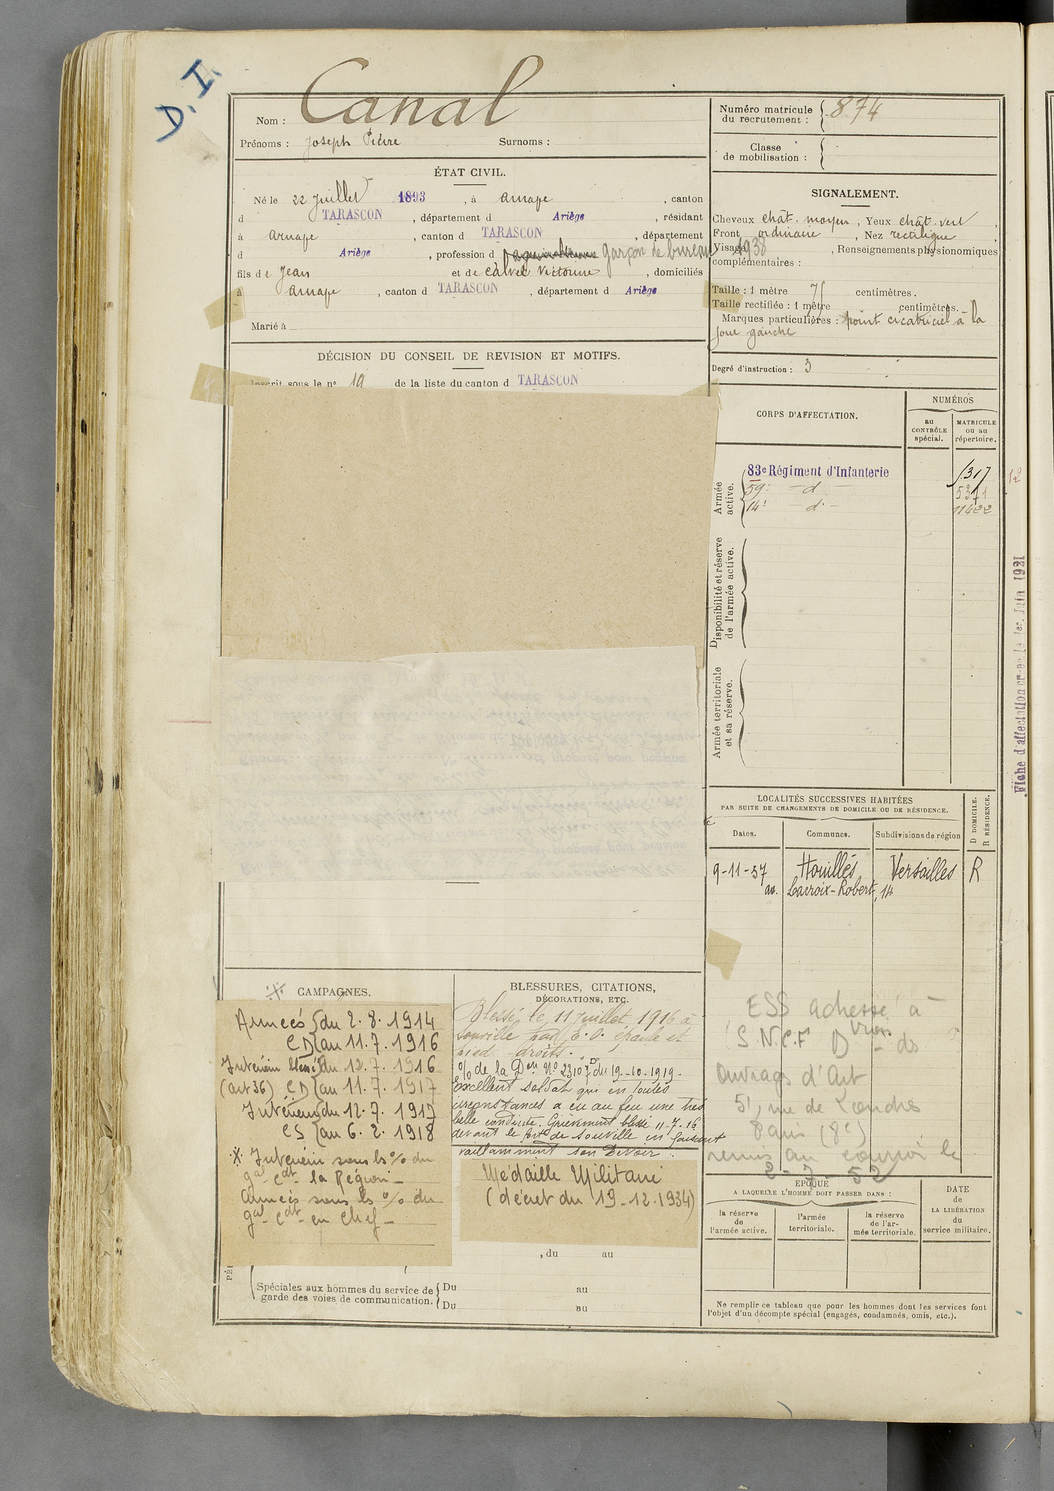 D.I
Nom : Canal
Prénoms : Joseph Pierre Surnoms :
Numéro matricule
du recrutement : 874
Classe
de mobilisation :
ÉTAT CIVIL.
Né le 22 Juillet 1893, à Arnave, canton
d TARASCON, département d Ariège, résidant
à Arnave, canton d TARASCON, département
d Ariège, profession d garçon de bureau 1938
fils de Jean et de Calvet Victorine, domiciliés
à Arnave, canton d TARASCON, département d Ariège
Marié à
SIGNALEMENT.
Cheveux chât. moyen, Yeux chât. vert
Front ordinaire, Nez rectiligne
Visage, Renseignements physionomiques
complémentaires :
Taille : 1 mètre 71 centimètres.
Taille rectifiée : 1 mètre centimètres.
Marques particulières : point cicatriciel à la
joue gauche
Degré d'instruction : 3
DÉCISION DU CONSEIL DE REVISION ET MOTIFS.
Inscrit sous le n° 19 de la liste du canton d TARASCON
CORPS D'AFFECTATION.
NUMÉROS
au
CONTRÔLE
spécial.
MATRICULE
ou au
répertoire.
Armée
active.
83e Régiment d'Infanterie
59e - d -
14e - d -
5371
11422
12
Disponibilité et réserve
de l'armée active.
Armée territoriale
et sa réserve.
Fiche d'affectation créée le 1er Juin 1921
LOCALITÉS SUCCESSIVES HABITÉES
PAR SUITE DE CHANGEMENTS DE DOMICILE OU DE RÉSIDENCE.
D DOMICILE.
R RÉSIDENCE.
Dates. Communes. Subdivisions de région
9-11-37 Houilles Versailles R
av. Lacroix-Robert, 14
ESS adressé à
S.N.C.F. Dion des
Ouvrages d'Art
51, rue de Londres
Paris (8e)
remis au courrier le
2-7-52
CAMPAGNES.
Armées du 2.8.1914
CD au 11.7.1916
Intérieur blessé du 12.7.1916
(art 36) CD au 11.7.1917
Intérieur du 12.7.1917
CS au 6.2.1918
* Intérieur sous les o/o du
gal Cdt la Région -
Armées sous les o/o du
gal Cdt en Chef -
BLESSURES, CITATIONS,
DÉCORATIONS, ETC.
Blessé le 11 juillet 1916 à
Souville par E.O. épaule et
pied droits.
o/o de la Don N° 2310 D du 19-10-1919.
Excellent soldat qui en toutes
circonstances a eu au feu une très
belle conduite. Grièvement blessé 11-7-16
devant le fort de Souville en faisant
vaillamment son devoir.
Médaille Militaire
(décret du 19-12.1934)
, du au
Spéciales aux hommes du service de
garde des voies de communication.
Du au
Du au
ÉPOQUE
A LAQUELLE L'HOMME DOIT PASSER DANS :
la réserve
de
l'armée active.
l'armée
territoriale.
la réserve
de l'ar-
mée territoriale.
DATE
de
LA LIBÉRATION
du
service militaire.
Ne remplir ce tableau que pour les hommes dont les services font
l'objet d'un décompte spécial (engagés, condamnés, omis, etc.).